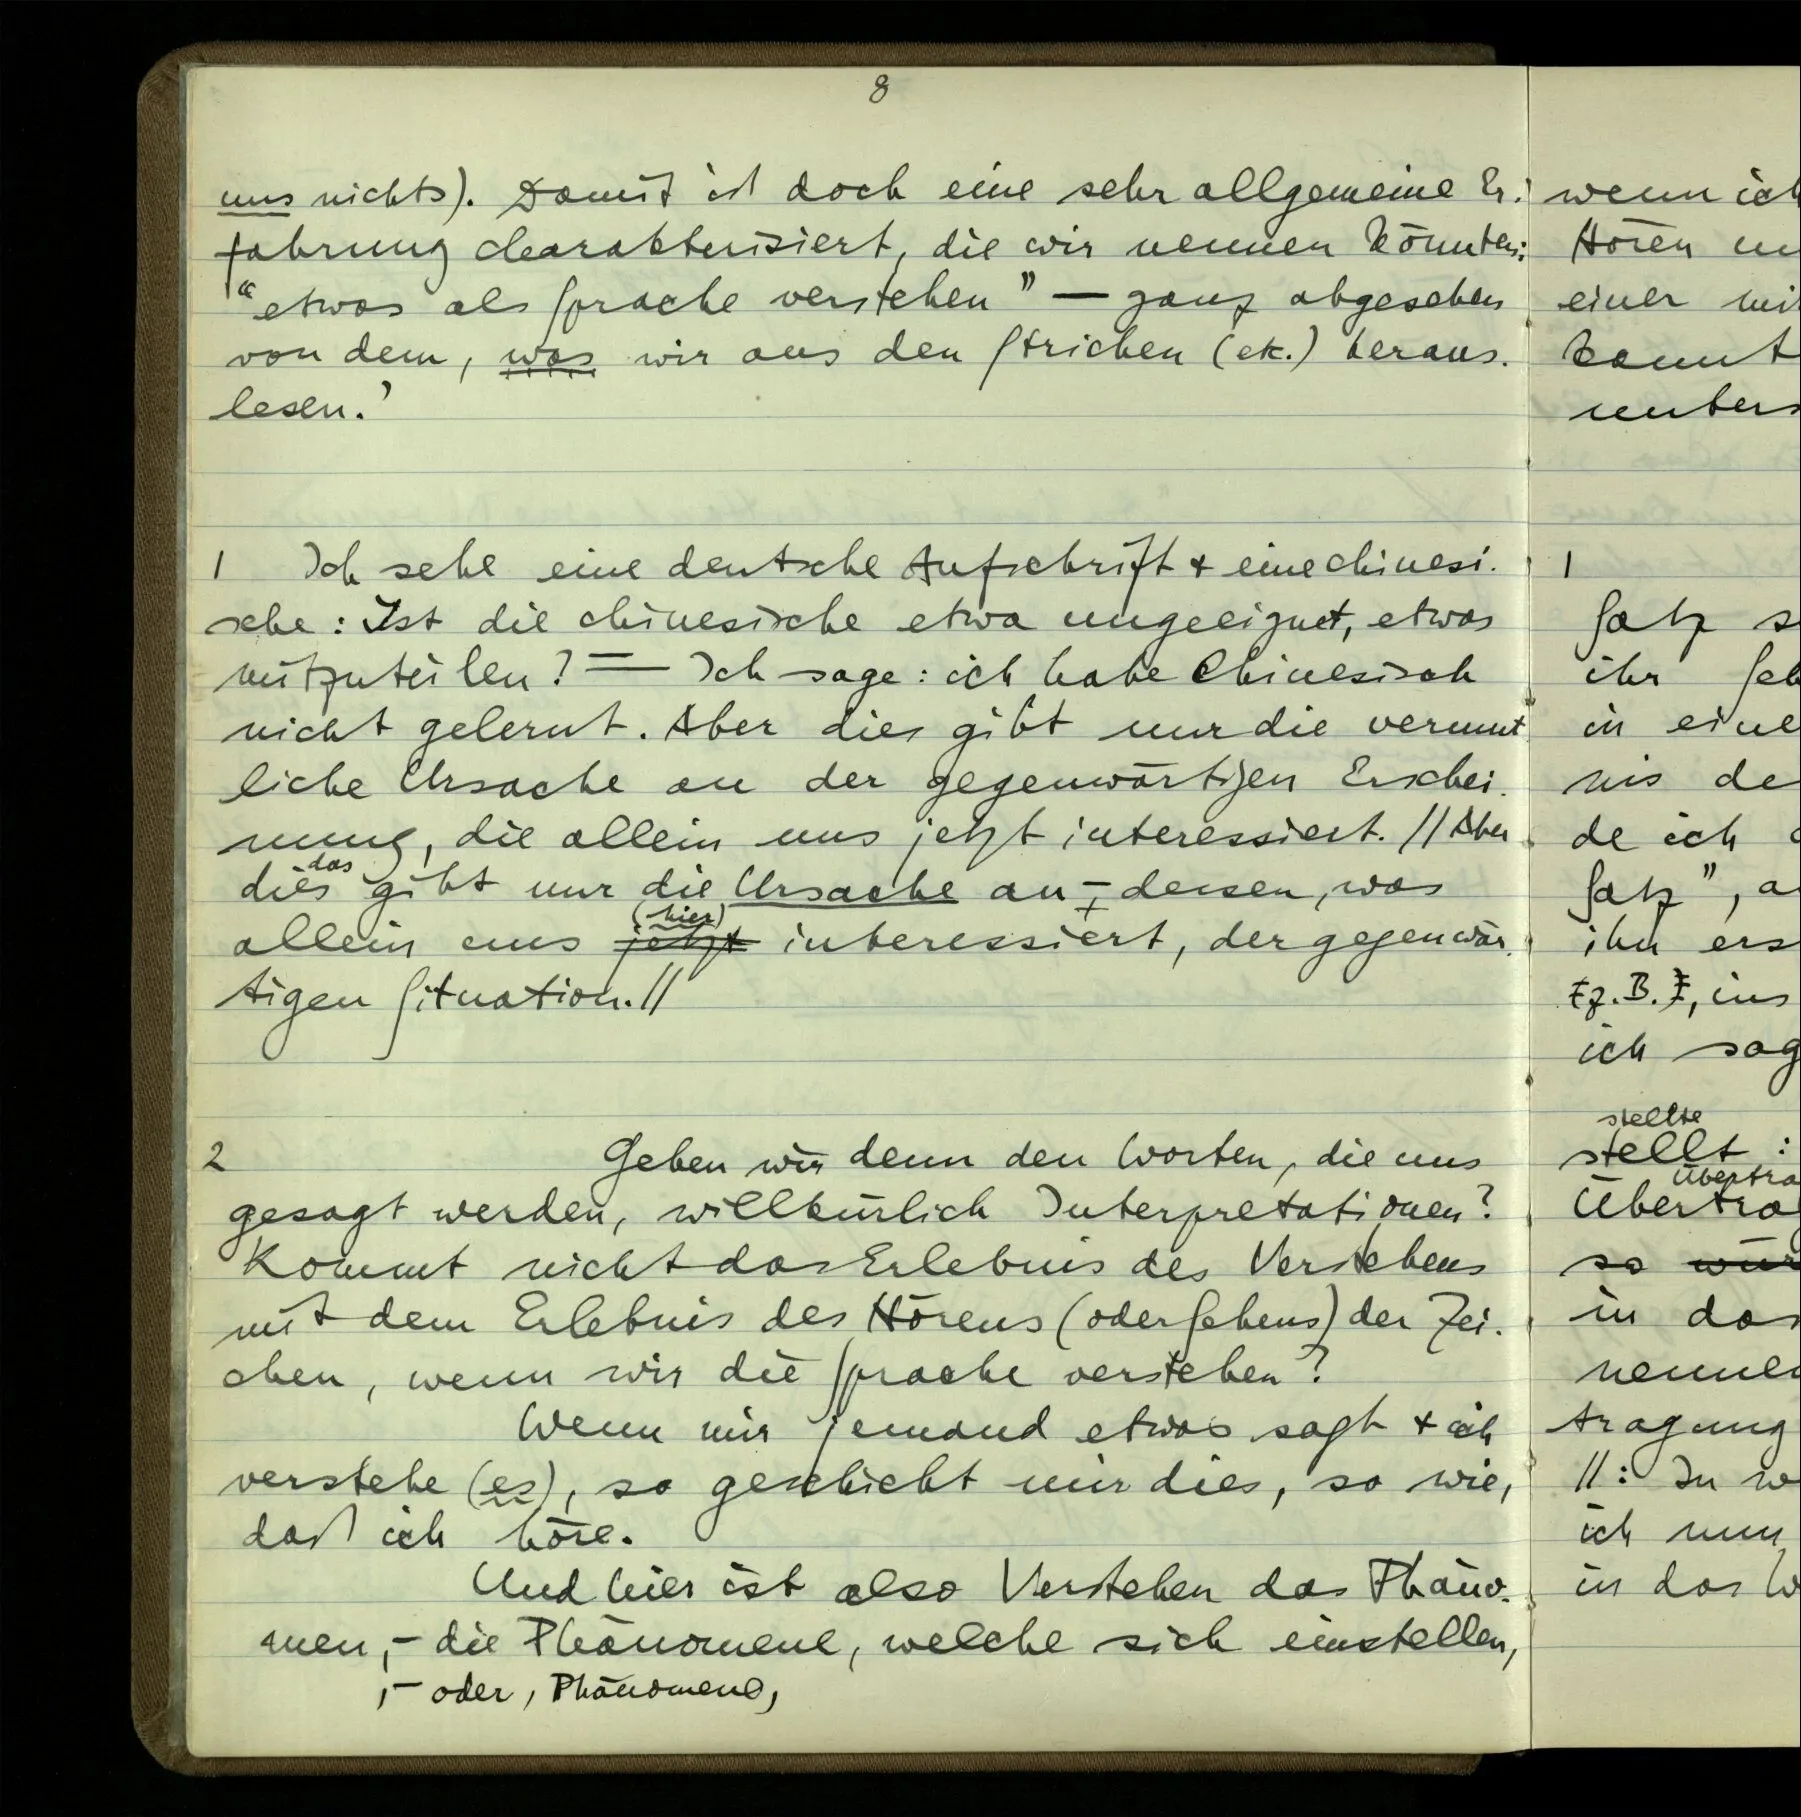 8
uns nichts). Damit ist doch eine sehr allgemeine Er-
fahrung charakterisiert, die wir nennen könnten:
“etwas als Sprache verstehen” — ganz abgesehen
von dem, was wir aus den Strichen (etc.) heraus-
lesen.’
1 Ich sehe eine deutsche Aufschrift + eine chinesi-
sche: Ist die chinesische etwa ungeeignet, etwas
mitzuteilen? — Ich sage: ich habe Chinesisch
nicht gelernt. Aber dies gibt nur die vermut
liche Ursache an der gegenwärtigen Erschei-
nung, die allein uns jetzt interessiert. // Aber
das
dies gibt nur die Ursache an, – dessen, was
(hier)
allein uns jetzt interessiert, der gegenwär-
tigen Situation. //
2 Geben wir denn den Worten, die uns
gesagt werden, willkürlich Interpretationen?
Kommt nicht das Erlebnis des Verstehens
mit dem Erlebnis des Hörens (oder Sehens) der Zei-
chen, wenn wir die Sprache verstehen?
Wenn mir jemand etwas sagt + ich
verstehe (es), so geschieht mir dies, so wie,
daß ich höre.
Und hier ist also Verstehen das Phäno-
men, – die Phänomene, welche sich einstellen,
, – oder, Phänomene,
wenn ich
Hören
einer mi
kannt
unters
1
Satz s
ihr Seh
in eine
nis de
de ich
Satz”, a
ihn ers
z.B., ins
ich sag
stellte
stellt:
Übertra
Übertra
so wür
in das
nennen
tragung
//: In w
ich nun
in das W